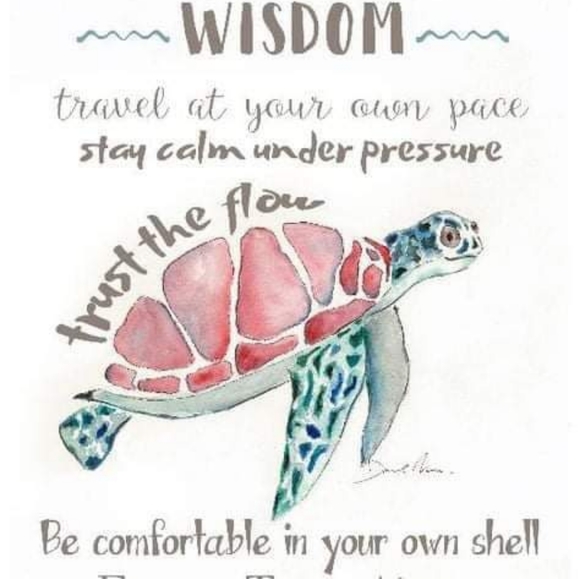 WISDOM
travel at your own pace
stay calm under pressure
trust the flow
Be comfortable in your own shell